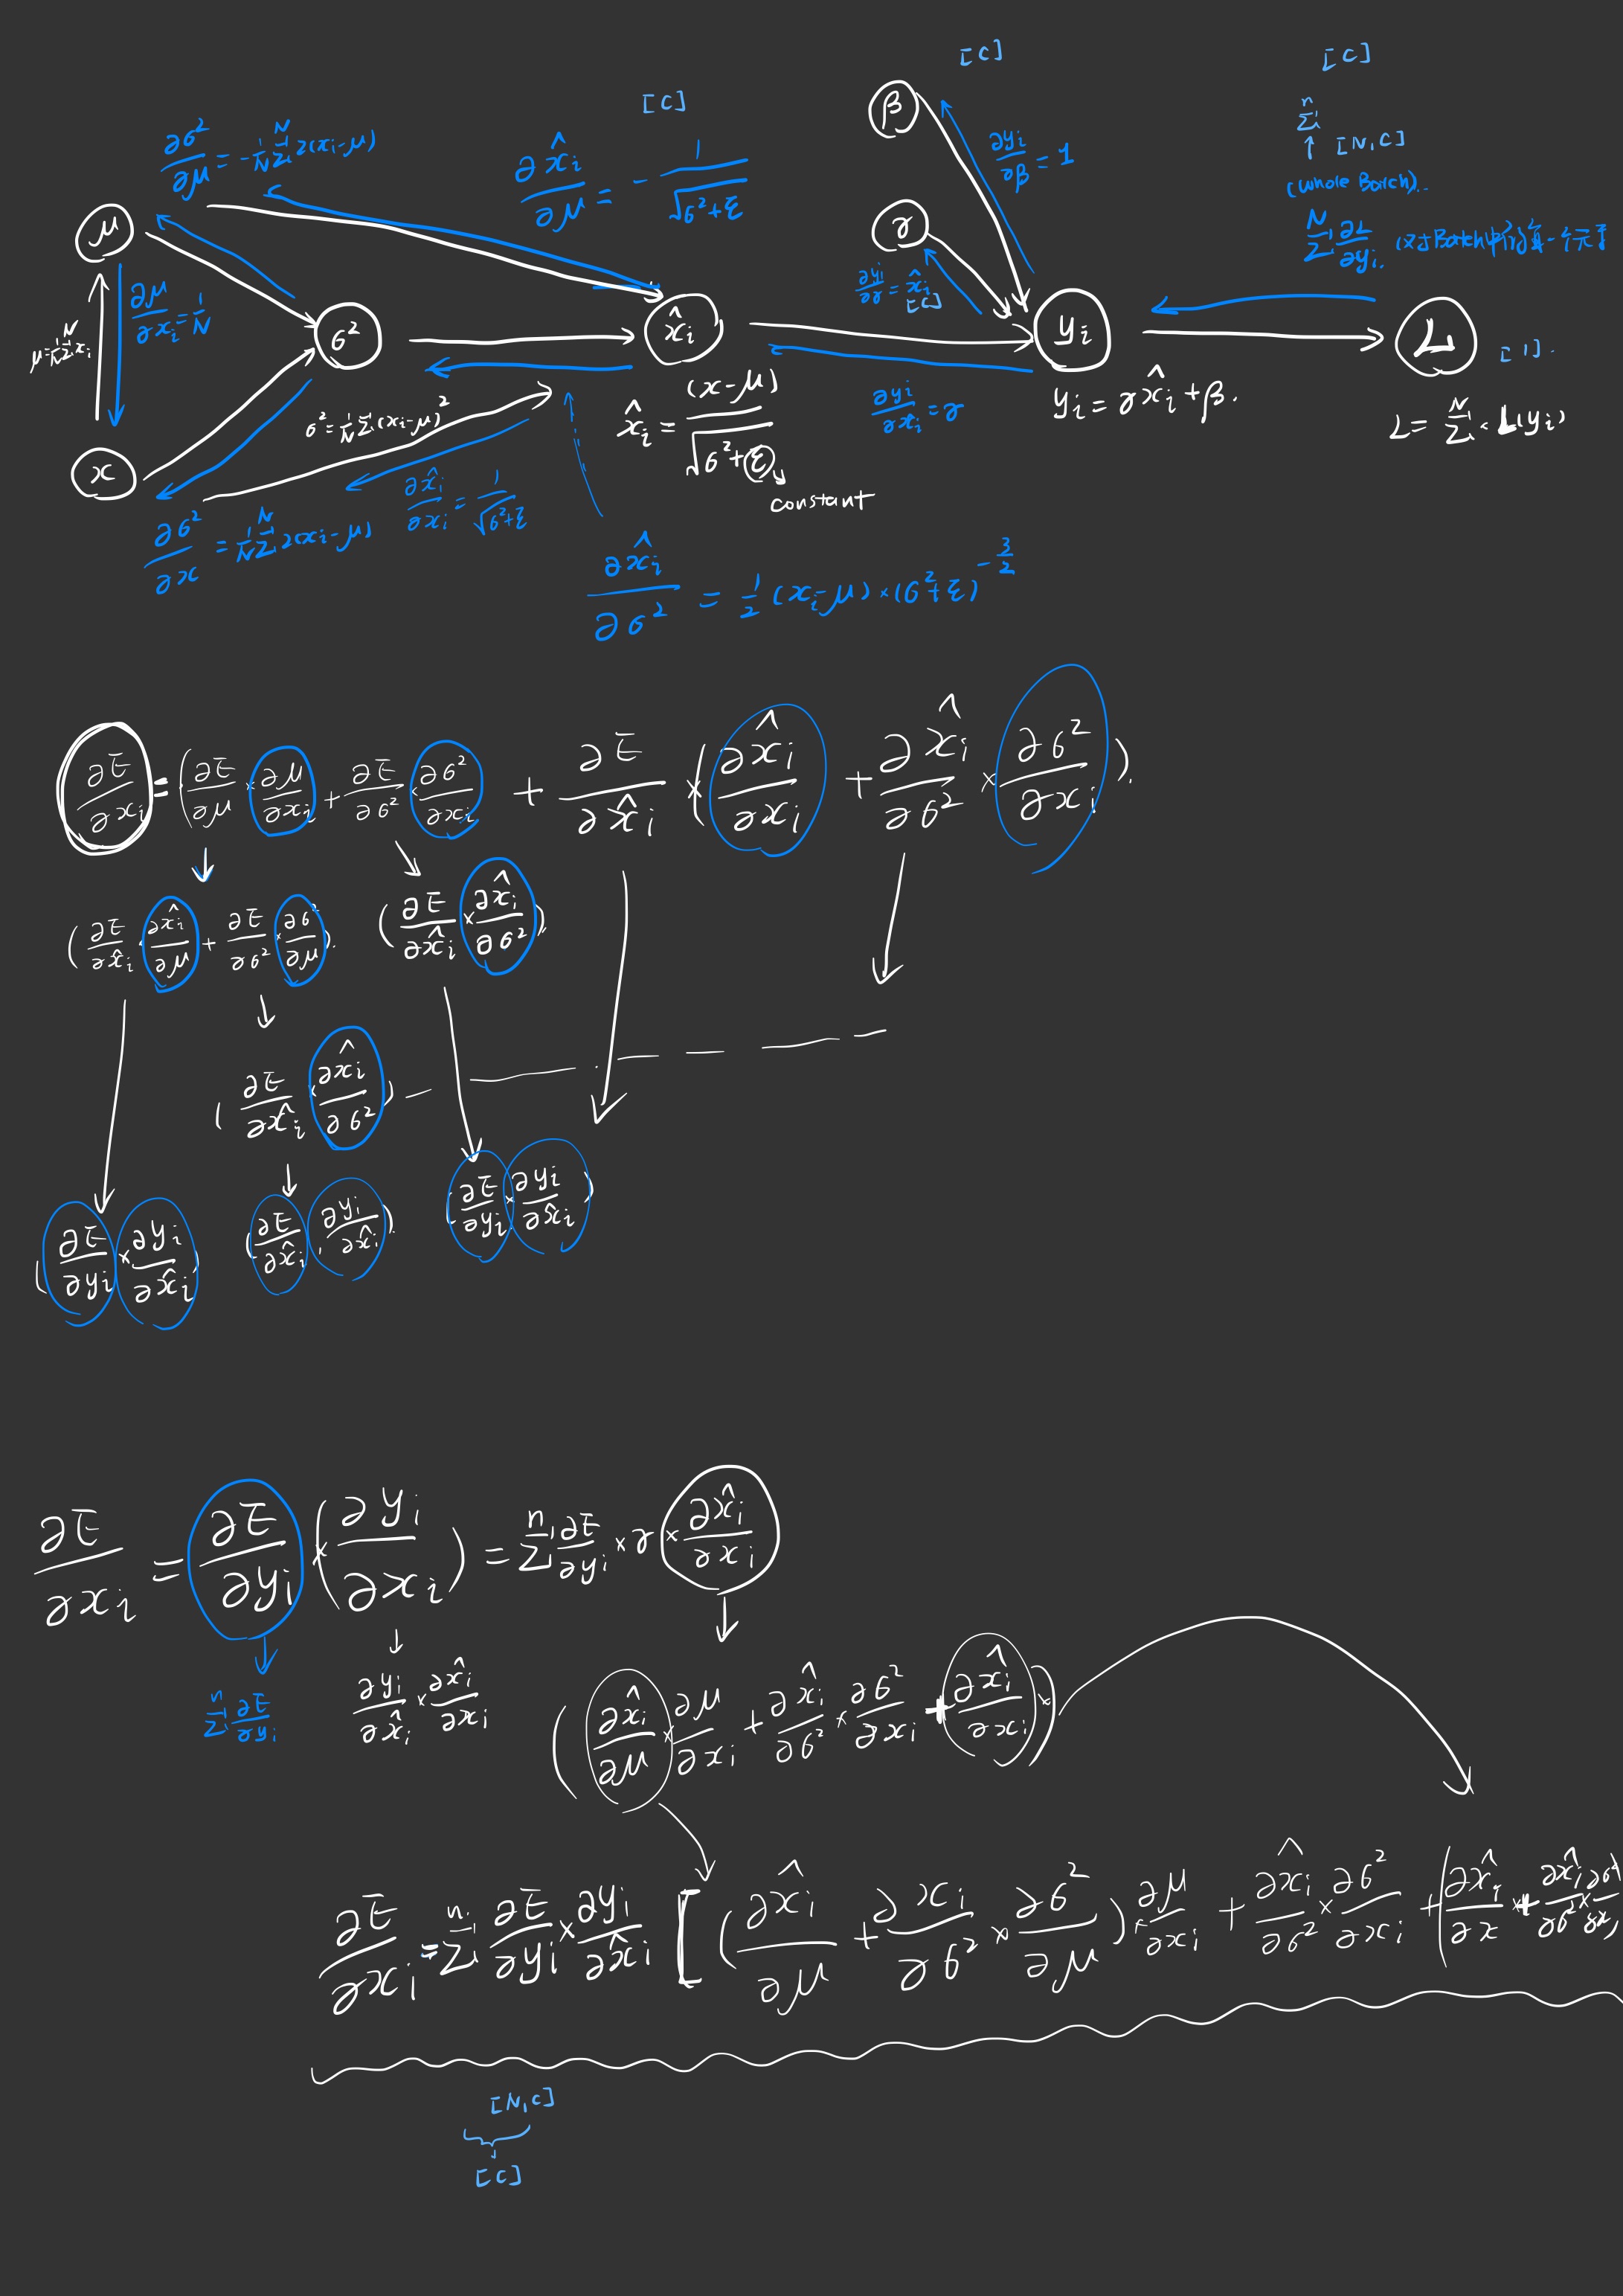 [C]
[C]
[C]
β
n Σ i
↑ [N,C]
(whole Batch).
∂σ²/∂μ = -1/N Σ^N 2(xi-μ)
∂x̂i/∂μ = - 1/√(σ²+ξ)
∂yi/∂β = 1
N Σ ∂L/∂yi. (对Batch中的每一个元素
μ
γ
∂μ/∂xi = 1/N
∂yi/∂γ = x̂i
[C]
μ = 1/N Σ^N xi
σ²
x̂i
yi
L
[1].
σ² = 1/N Σ^N (xi-μ)²
x̂i = (x-μ)/√(σ²+ξ)
constant
∂yi/∂x̂i = γ
yi = γx̂i + β.
L = Σ^N L(yi)
x
∂σ²/∂x = 1/N Σ^N 2(xi-μ)
∂x̂i/∂xi = 1/√(σ²+ξ)
∂x̂i/∂σ² = 1/2 (xi-μ)×(σ²+ξ)^-3/2
∂E/∂xi = (∂E/∂μ × ∂μ/∂xi + ∂E/∂σ² × ∂σ²/∂xi + ∂E/∂x̂i × (∂x̂i/∂xi + ∂x̂i/∂σ² × ∂σ²/∂xi).
(∂E/∂x̂i · ∂x̂i/∂μ + ∂E/∂σ² × ∂σ²/∂μ).
(∂E/∂x̂i × ∂x̂i/∂σ²),
(∂E/∂x̂i · ∂x̂i/∂σ²)
(∂E/∂yi × ∂yi/∂x̂i)
(∂E/∂x̂i · ∂yi/∂x̂i).
(∂E/∂yi × ∂yi/∂x̂i)
∂E/∂xi = ∂E/∂yi × (∂yi/∂xi) = Σ^n ∂E/∂yi × γ × ∂x̂i/∂xi
Σ^n ∂E/∂yi
∂yi/∂x̂i × ∂x̂i/∂xi
(∂x̂i/∂μ × ∂μ/∂xi + ∂x̂i/∂σ² × ∂σ²/∂xi + ∂x̂i/∂xi ×)
∂E/∂xi = Σ^n ∂E/∂yi × ∂yi/∂x̂i [(∂x̂i/∂μ + ∂xi/∂σ² × ∂σ²/∂μ) × ∂μ/∂xi + ∂x̂i/∂σ² × ∂σ²/∂xi + (∂x̂i/∂x + ∂x̂i/∂σ² × ∂σ²/∂x)
[N,C]
[C]